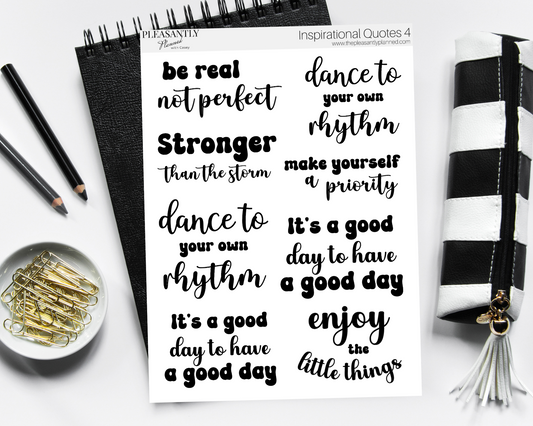 PLEASANTLY
Planned
with Casey
Inspirational Quotes 4
www.thepleasantlyplanned.com
be real
not perfect
Stronger
than the storm
dance to
your own
rhythm
It's a good
day to have
a good day
dance to
your own
rhythm
make yourself
a priority
It's a good
day to have
a good day
enjoy
the
little things